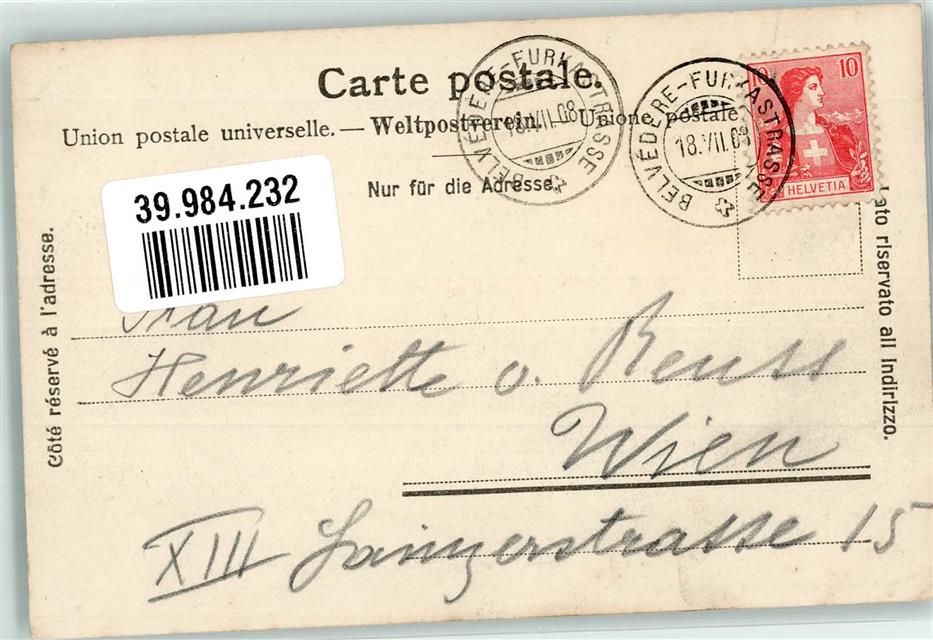 Carte postale.
Union postale universelle. — Weltpostverein. — Unione postale
Nur für die Adresse.
BELVÉDÈRE-FURKASTRASSE
18.VII.08
BELVÉDÈRE-FURKASTRASSE
18.VII.08
10 10
HELVETIA
39.984.232
Côté réservé à l'adresse.
Lato riservato all indirizzo.
Frau
Henriette v. Reuss
Wien
XIII Lainzerstrasse 15